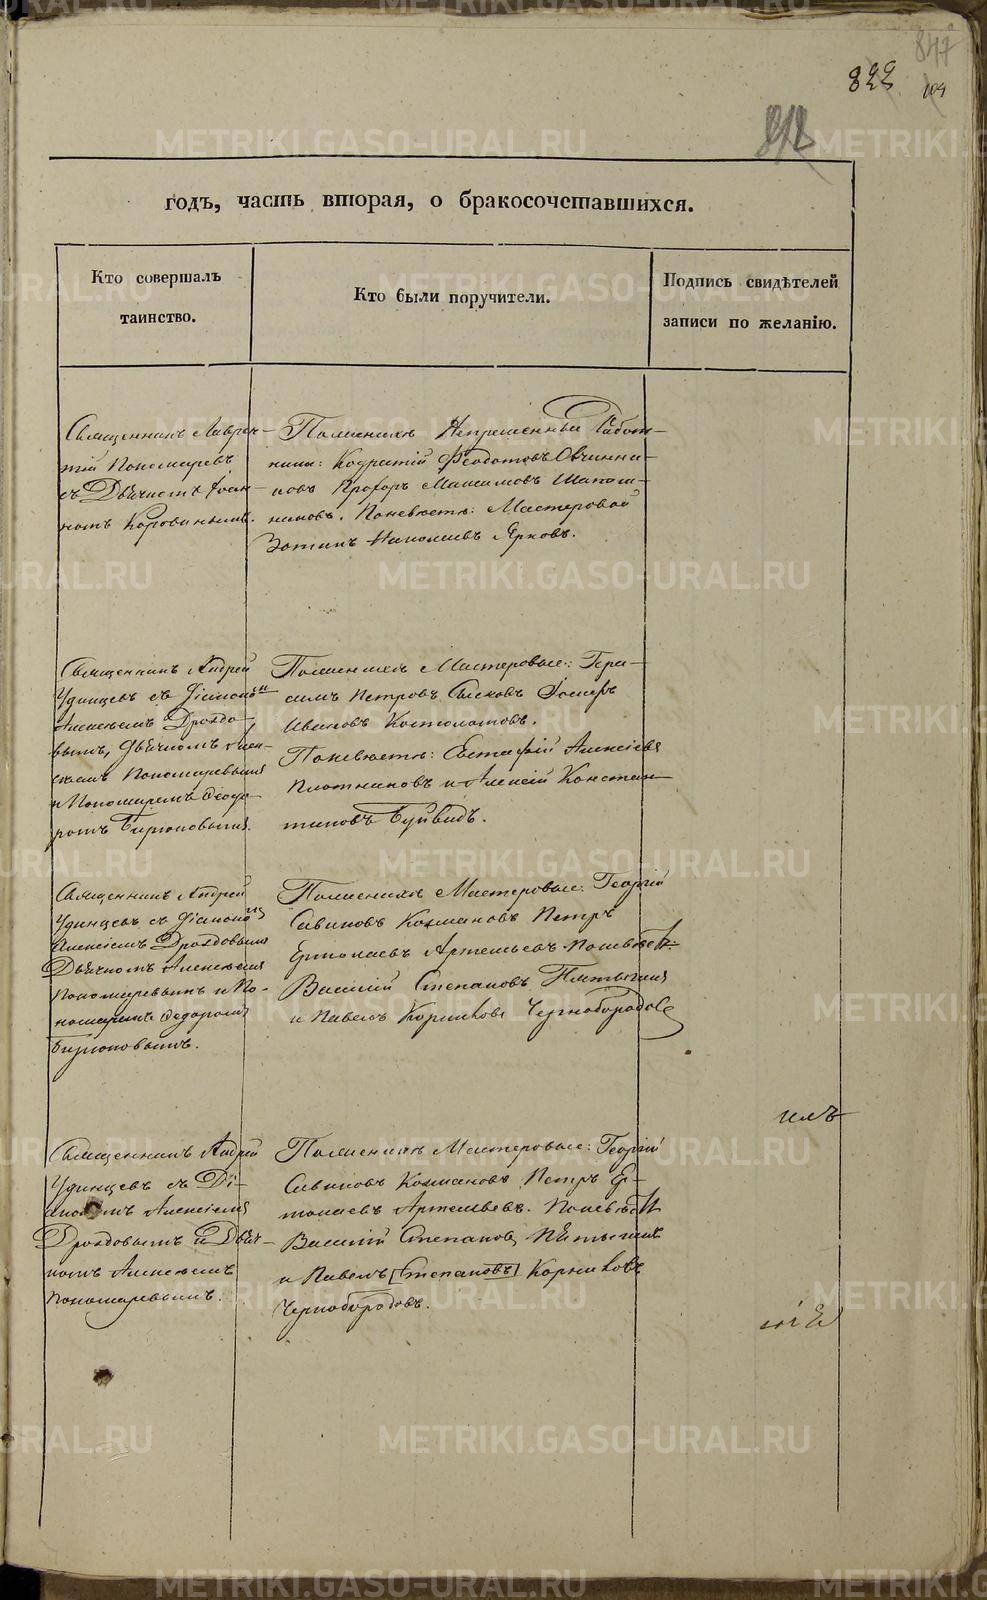 847
822 109
812
годъ, часть вторая, о бракосочетавшихся.
Кто совершалъ
таинство.
Кто были поручители.
Подпись свидѣтелей
записи по желанію.
Священникъ Лаврен-
тій Пономаревъ
съ Дьячкомъ Іоан-
номъ Коровинымъ.
По женихѣ Непременные Работ-
ники: Кодратій Ѳеодотовъ Овчинни-
ковъ Прохоръ Максимовъ Шапош-
никовъ. По невѣстѣ: Мастеровой
Зотикъ Николаевъ Ярковъ.
Священникъ Андрей
Удинцевъ съ Діакономъ
Алексѣемъ Дроздо-
вымъ, Дьячкомъ Алек-
сѣемъ Пономаревымъ
и Пономаремъ Ѳеодо-
ромъ Бирюковымъ.
По женихѣ Мастеровые: Гера-
симъ Петровъ Сысковъ Іосифъ
Ивановъ Костоломовъ.
По невѣстѣ: Евстафій Алексѣевъ
Плотниковъ и Алексій Констан-
тиновъ Буйвидъ.
Священникъ Андрей
Удинцевъ съ Діакономъ
Алексіемъ Дроздовымъ
Дьячкомъ Алексѣемъ
Пономаревымъ и По-
номаремъ Ѳедоромъ
Бирюковымъ.
По женихѣ Мастеровые: Георгій
Савиновъ Кохмановъ Петръ
Ермолаевъ Артемьевъ По невѣстѣ:
Василій Степановъ Пятыгинъ
и Павелъ Корниловъ Чернобородовъ
Священникъ Андрей
Удинцевъ съ Ді-
акономъ Алексіемъ
Дроздовымъ и Дьяч-
комъ Алексѣемъ
Пономаревымъ.
По женихѣ Мастеровые: Георгій
Савиновъ Кохмановъ Петръ Ер-
молаевъ Артемьевъ. По невѣстѣ
Василій Степановъ Пятыгинъ
и Павелъ [Степановъ] Корниловъ
Чернобородовъ.
METRIKI.GASO-URAL.RU